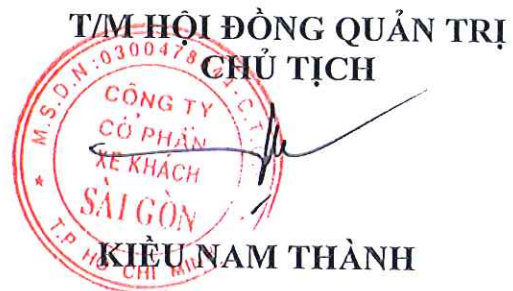 T/M HỘI ĐỒNG QUẢN TRỊ
CHỦ TỊCH
M.S.D.N:0300478
C.T
CÔNG TY
CỔ PHẦN
XE KHÁCH
SÀI GÒN
T.P HỒ CHÍ MINH
KIỀU NAM THÀNH